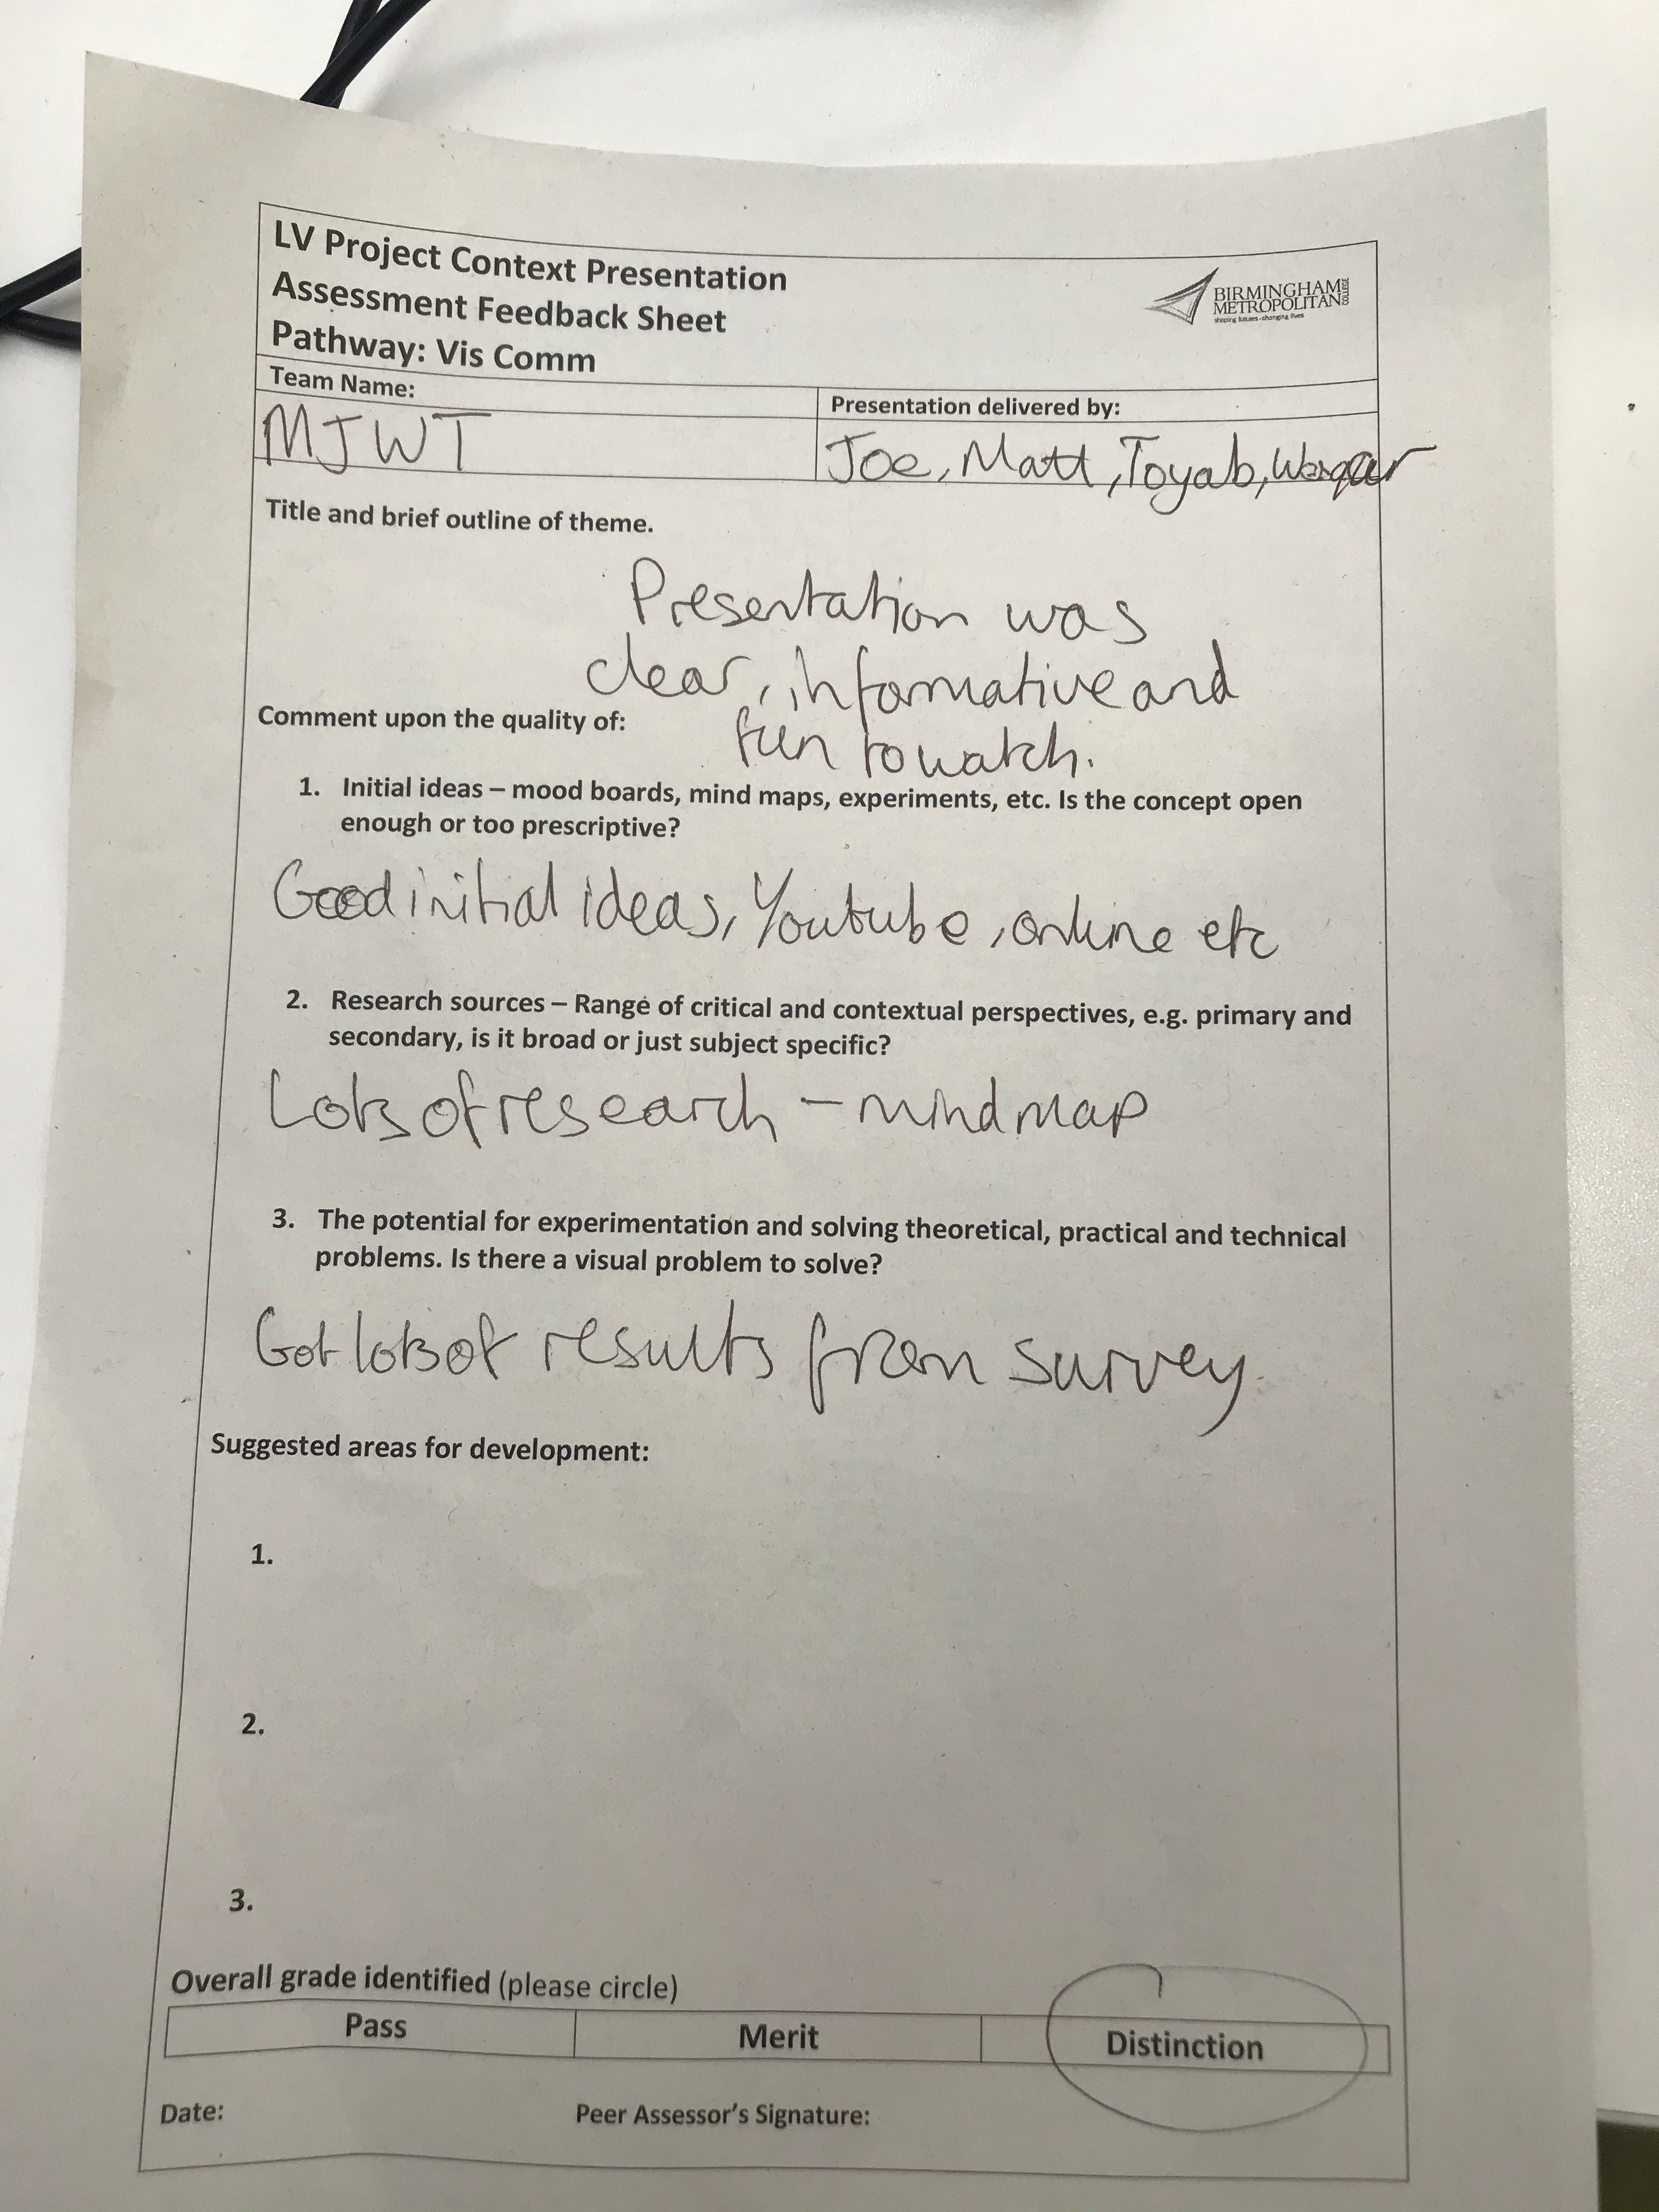 LV Project Context Presentation
Assessment Feedback Sheet
Pathway: Vis Comm
BIRMINGHAM
METROPOLITAN
COLLEGE
shaping futures - changing lives
Team Name:
Presentation delivered by:
MJWT
Joe, Matt, Toyab, Waqar
Title and brief outline of theme.
Presentation was
clear, informative and
fun to watch.
Comment upon the quality of:
1. Initial ideas – mood boards, mind maps, experiments, etc. Is the concept open
enough or too prescriptive?
Good initial ideas, Youtube, online etc
2. Research sources – Range of critical and contextual perspectives, e.g. primary and
secondary, is it broad or just subject specific?
Lots of research – mind map
3. The potential for experimentation and solving theoretical, practical and technical
problems. Is there a visual problem to solve?
Got lots of results from survey.
Suggested areas for development:
1.
2.
3.
Overall grade identified (please circle)
Pass Merit Distinction
Date: Peer Assessor's Signature: